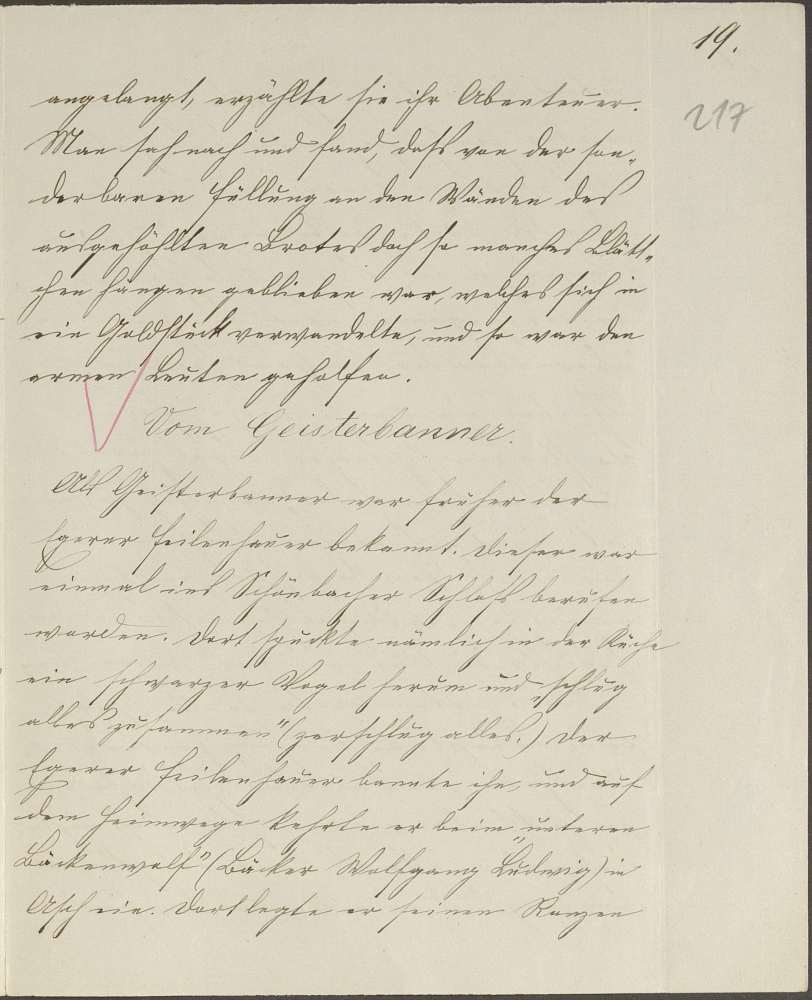 19.
217
angelangt, erzählte sie ihr Abenteuer.
Man sah nach und fand, daß von der son-
derbaren Füllung an den Wänden des
ausgehöhlten Brotes doch so manches Blätt-
chen hängen geblieben war, welches sich in
ein Goldstück verwandelte, und so war den
armen Leuten geholfen.
Vom Geisterbanner.
Als Geisterbanner war früher der
Egerer Feilenhauer bekannt. Dieser war
einmal ins Schönbacher Schloß berufen
worden. Dort spuckte nämlich in der Küche
ein schwarzer Vogel herum und „schlug
alles zusammen" (zerschlug alles.) Der
Egerer Feilenhauer bannte ihn, und auf
dem Heimwege kehrte er beim „unteren
Bäckenwolf" (Bäcker Wolfgang Ludwig) in
Asch ein. Dort legte er seinen Ranzen